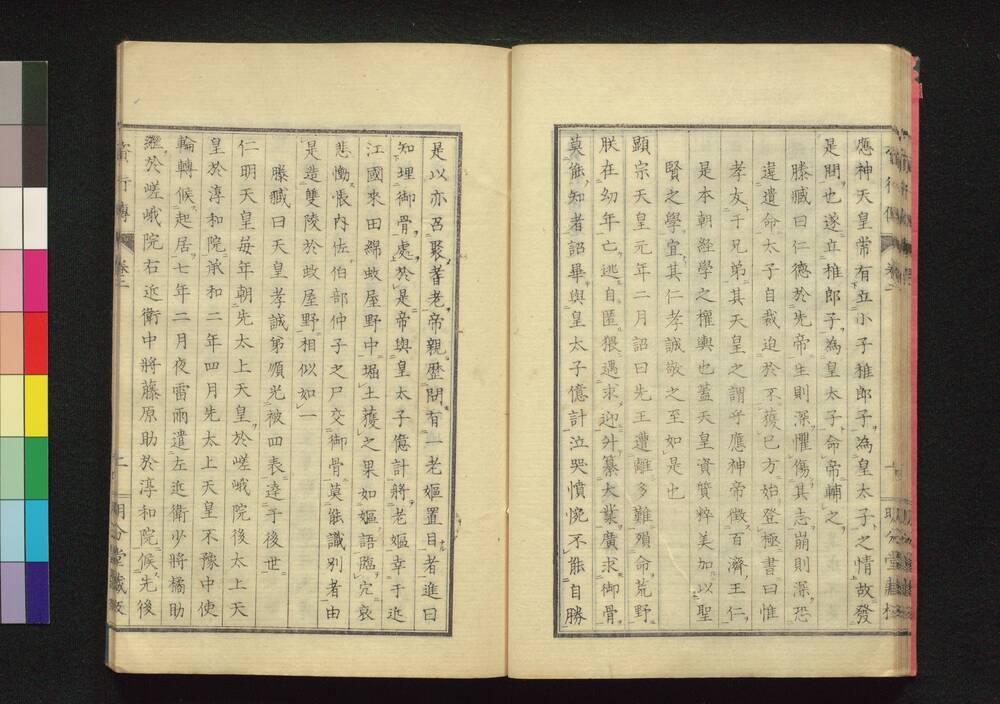 應神天皇常有立小子稚郎子為皇太子之情故發
是問也遂立稚郎子為皇太子命帝輔之
滕臧曰仁德於先帝生則深懼傷其志崩則深恐
違遺命太子自裁迫於不獲已方始登極書曰惟
孝友于兄弟其天皇之謂乎應神帝徵百濟王仁
是本朝經學之權輿也蓋天皇資質粹美加以聖
賢之學宜其仁孝誠敬之至如是也
顯宗天皇元年二月詔曰先王遭離多難殞命荒野
朕在幼年亡逃自匿猥遇求迎升纂大業廣求御骨
莫能知者詔畢與皇太子億計泣哭憤惋不能自勝
是以亦召聚耆老帝親歷問有一老嫗置目者進曰
知埋御骨處於是帝與皇太子億計將老嫗幸于近
江國來田綿蚊屋野中堀土獲之果如嫗語臨穴哀
悲慟悵內佐伯部仲子之尸交御骨莫能識別者由
是造雙陵於蚊屋野相似如一
滕臧曰天皇孝誠弟順光被四表達于後世
仁明天皇每年朝先太上天皇於嵯峨院後太上天
皇於淳和院承和二年四月先太上天皇不豫中使
輪轉候起居七年二月夜雷雨遣左近衛少將橘助
繼於嵯峨院右近衛中將藤原助於淳和院候先後